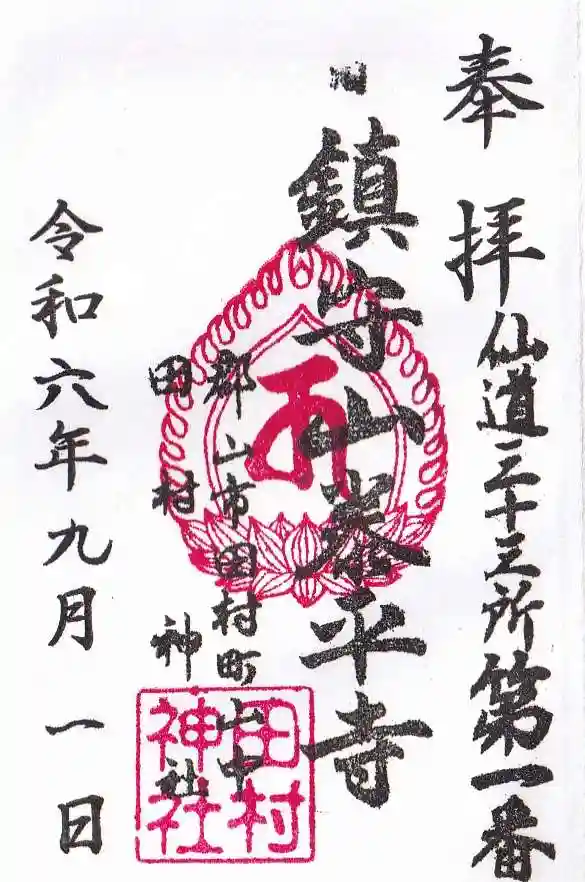 奉拝 仙道三十三所第一番
旧 鎮守山泰平寺
郡山市田村町山中
田村神社
田村神社
令和六年九月一日